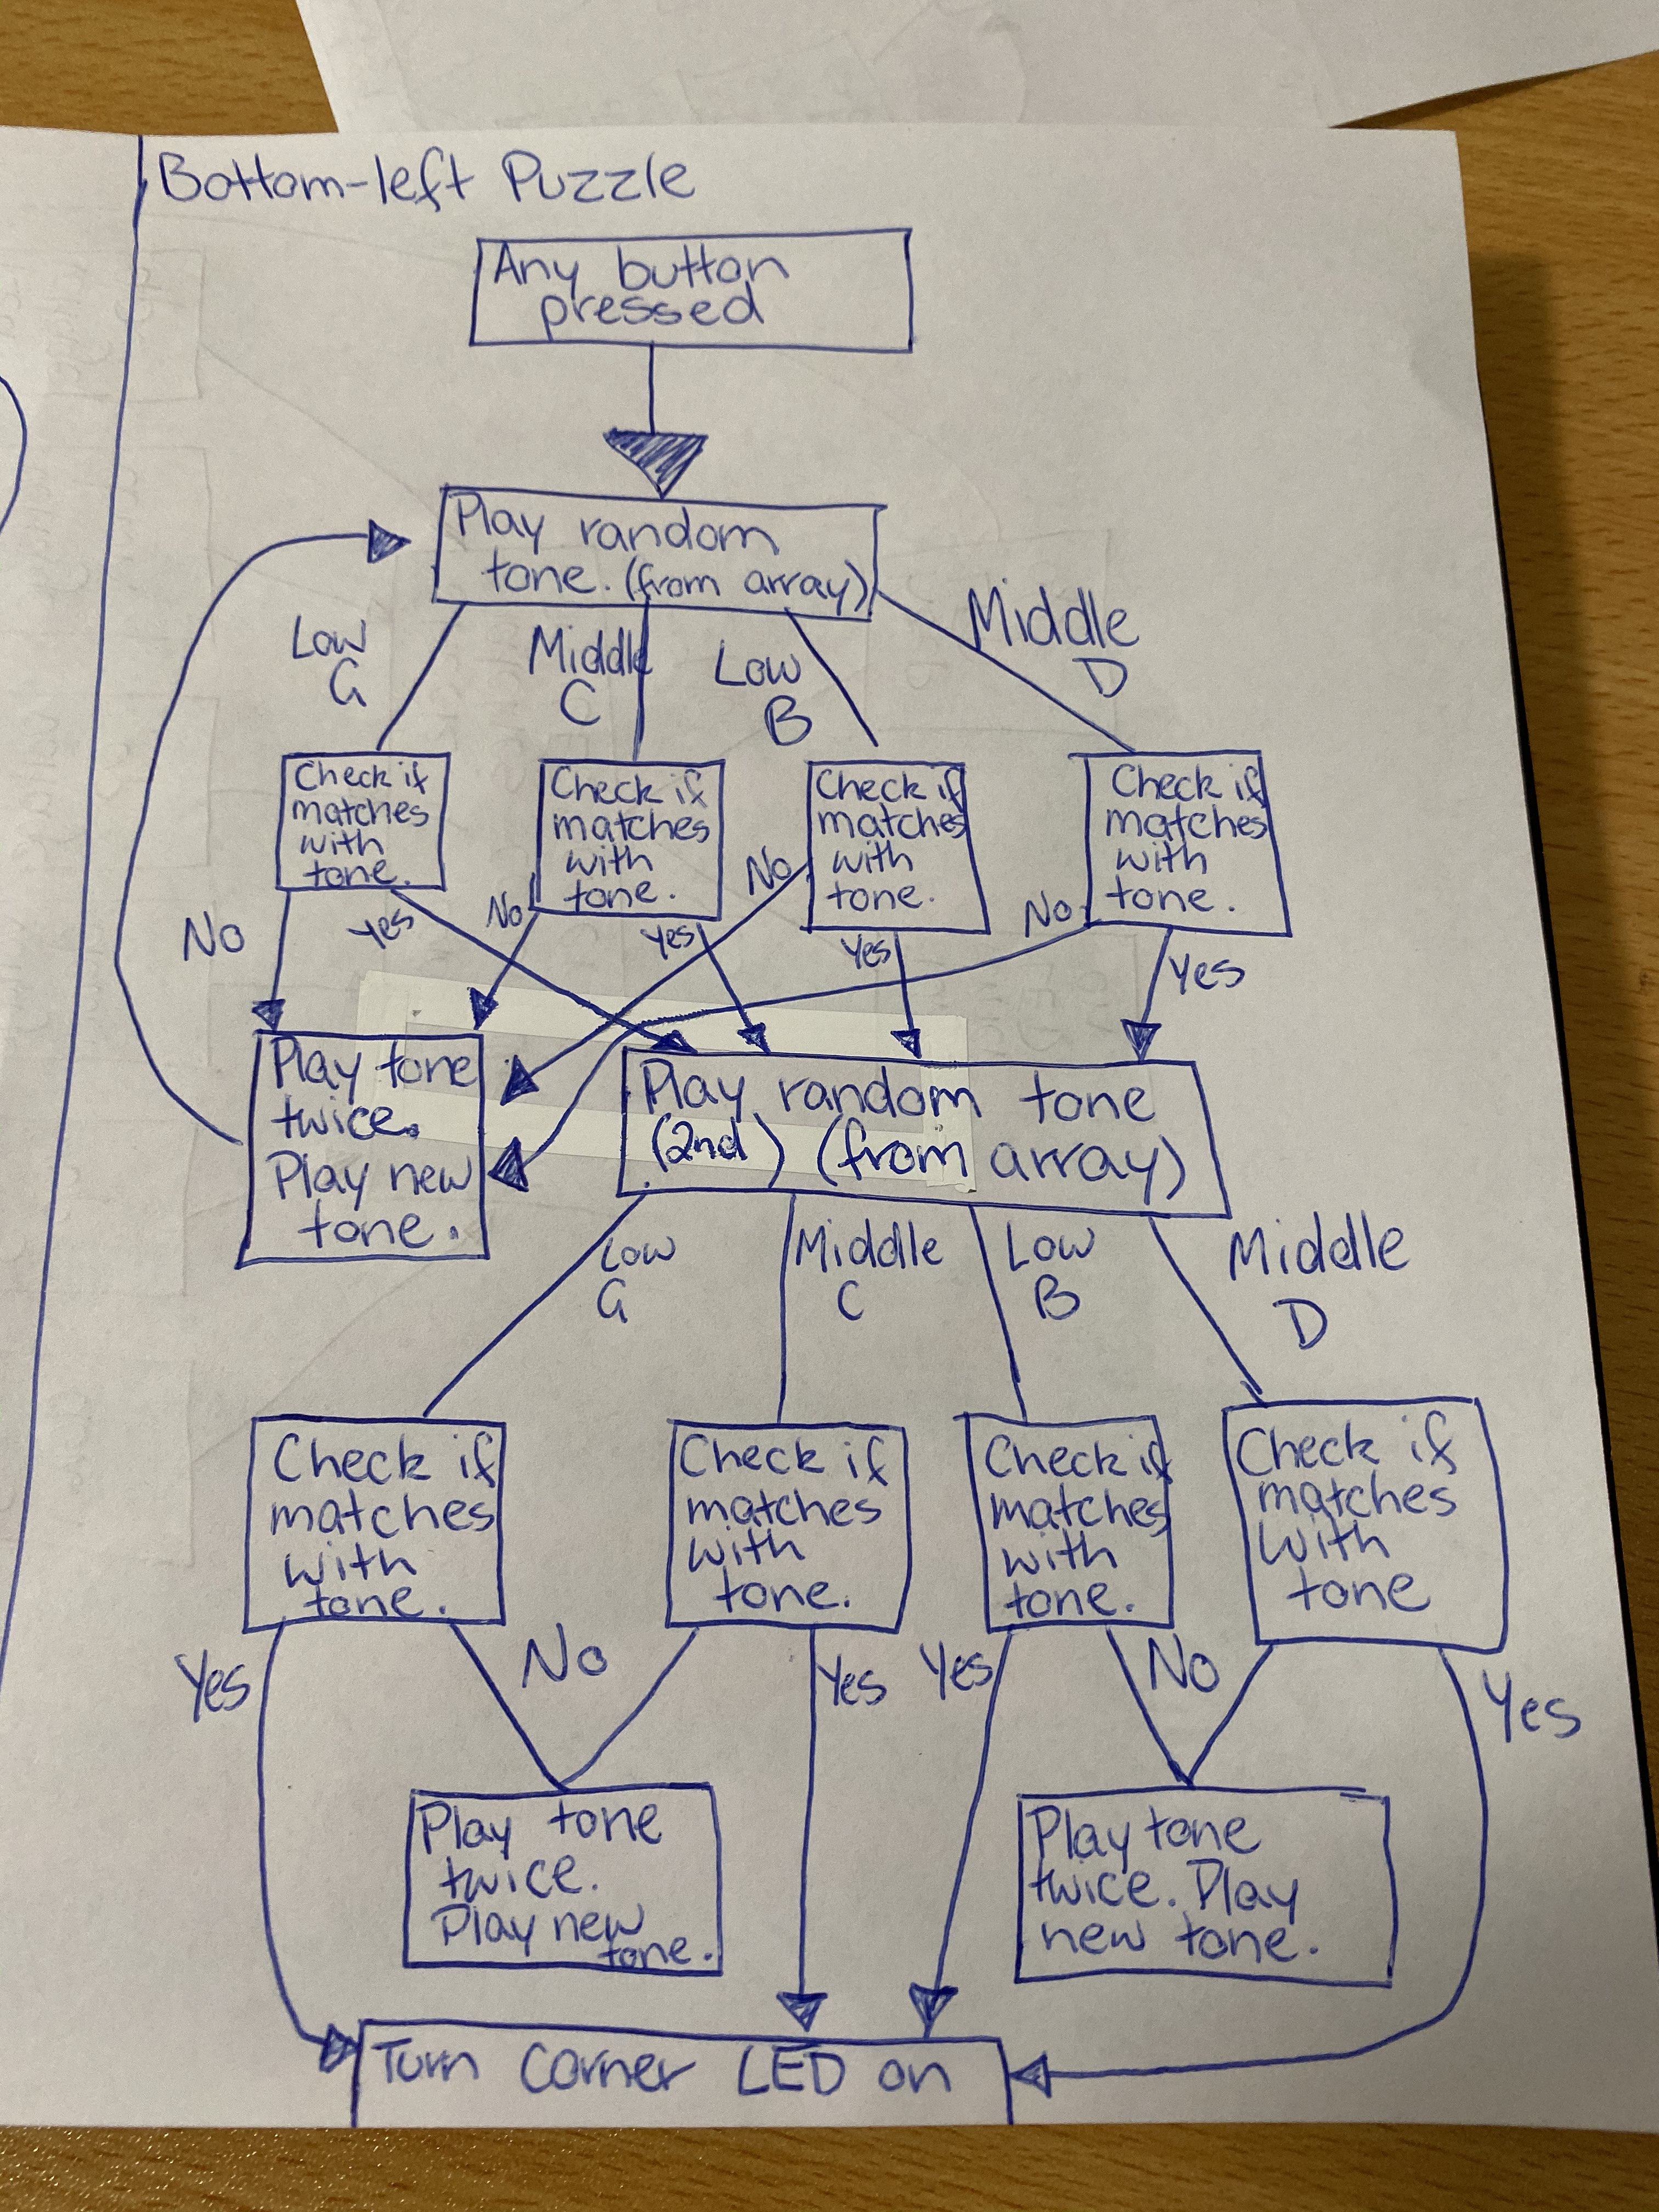 Bottom-left Puzzle
Any button
pressed
Play random
tone. (from array)
Low
G
Middle
C
Low
B
Middle
D
Check if
matches
with
tone.
Check if
matches
with
tone.
Check if
matches
with
tone.
Check if
matches
with
tone.
No
Yes
No
Yes
No
Yes
No
Yes
Play tone
twice.
Play new
tone.
Play random tone
(2nd) (from array)
Low
G
Middle
C
Low
B
Middle
D
Check if
matches
with
tone.
Check if
matches
with
tone.
Check if
matches
with
tone.
Check if
matches
with
tone
Yes
No
Yes
Yes
No
Yes
Play tone
twice.
Play new
tone.
Play tone
twice. Play
new tone.
Turn corner LED on